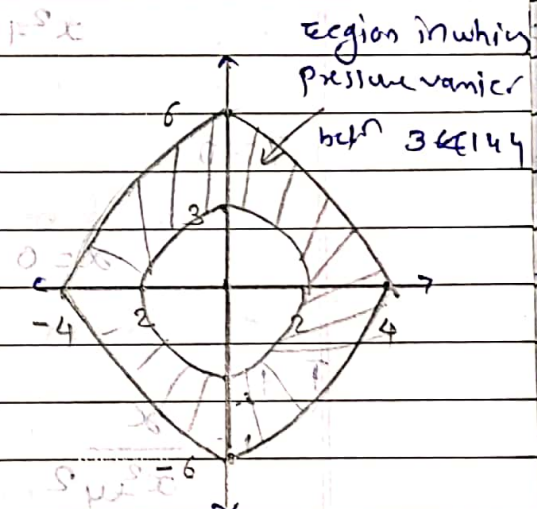 region in which
pressure varies
betn 36 & 144
6
3
-4
2
2
4
-6